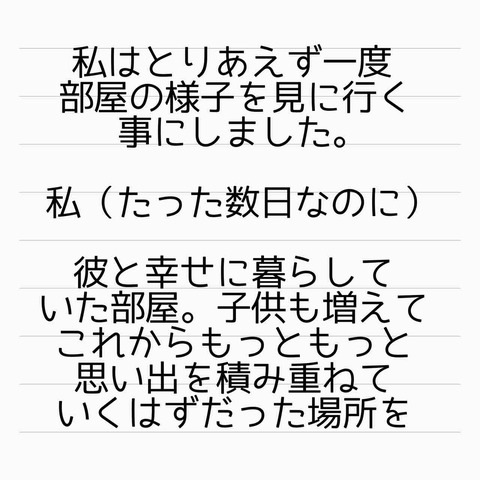 私はとりあえず一度
部屋の様子を見に行く
事にしました。
私（たった数日なのに）
彼と幸せに暮らして
いた部屋。子供も増えて
これからもっともっと
思い出を積み重ねて
いくはずだった場所を